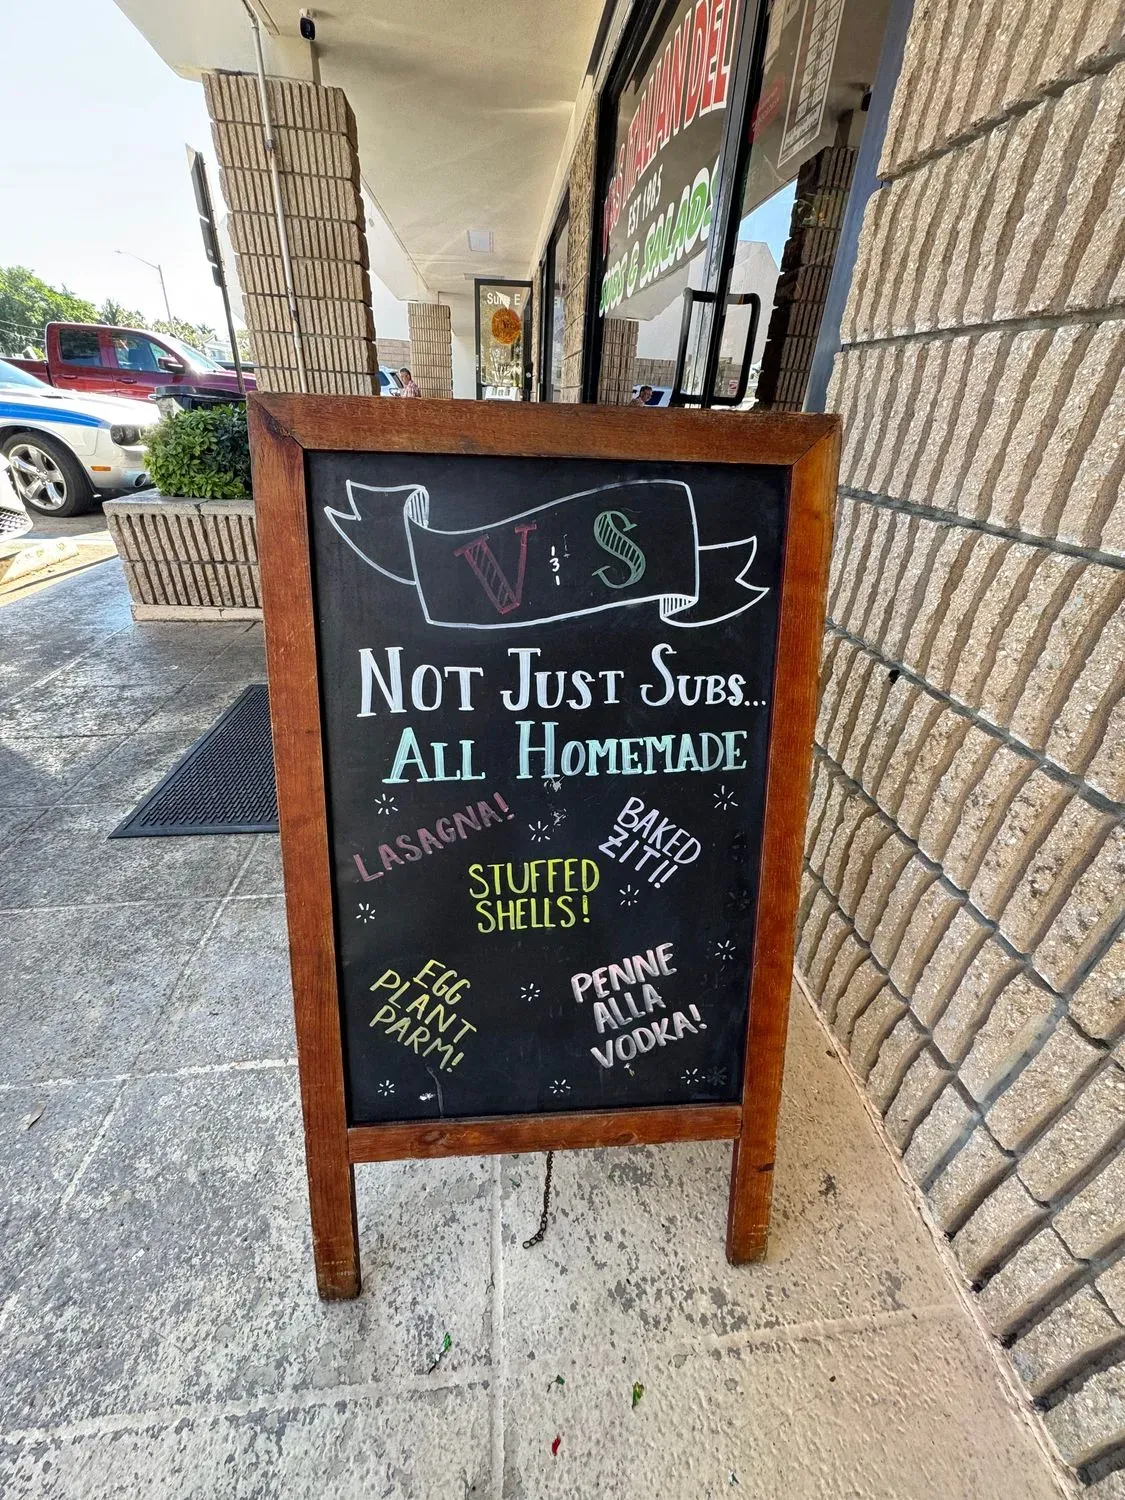 ITALIAN DELI
EST 1985
SUBS & SALADS
Suite E
V & S
NOT JUST SUBS...
ALL HOMEMADE
LASAGNA!
BAKED
ZITI!
STUFFED
SHELLS!
EGG
PLANT
PARM!
PENNE
ALLA
VODKA!